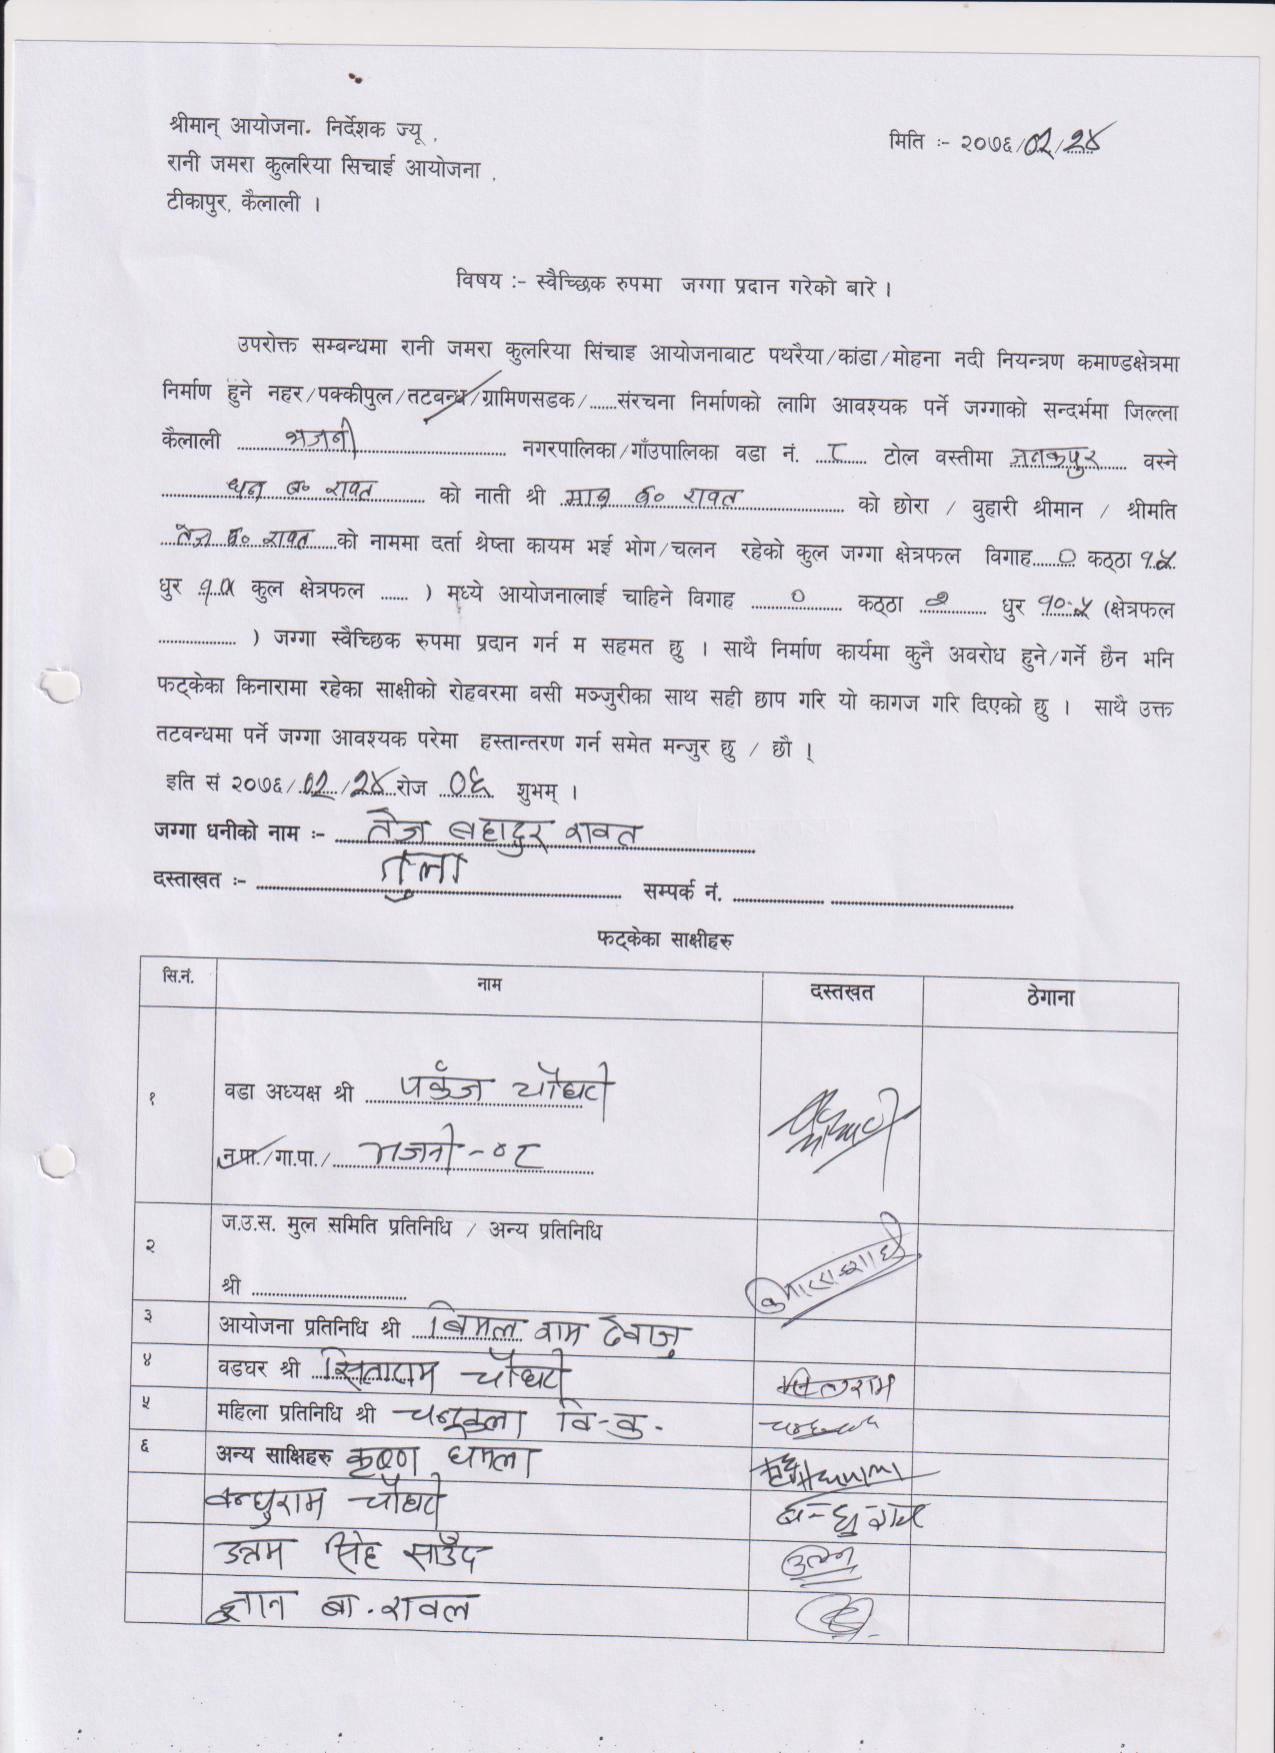 श्रीमान् आयोजना. निर्देशक ज्यू ,
मिति :- २०७६/०२/२४
रानी जमरा कुलरिया सिचाई आयोजना ,
टीकापुर, कैलाली ।
विषय :- स्वैच्छिक रुपमा जग्गा प्रदान गरेको बारे ।
उपरोक्त सम्बन्धमा रानी जमरा कुलरिया सिंचाइ आयोजनावाट पथरैया/कांडा/मोहना नदी नियन्त्रण कमाण्डक्षेत्रमा
निर्माण हुने नहर/पक्कीपुल/तटबन्ध/ग्रामिणसडक/......संरचना निर्माणको लागि आवश्यक पर्ने जग्गाको सन्दर्भमा जिल्ला
कैलाली भजनी नगरपालिका/गाँउपालिका वडा नं. ८ टोल वस्तीमा जनकपुर वस्ने
धन ब० रावत को नाती श्री मान ब० रावत को छोरा / वुहारी श्रीमान / श्रीमति
तेज ब० रावत को नाममा दर्ता श्रेष्ता कायम भई भोग/चलन रहेको कुल जग्गा क्षेत्रफल विगाह ० कठ्ठा १५
धुर कुल क्षेत्रफल ...... ) मध्ये आयोजनालाई चाहिने विगाह ० कठ्ठा धुर १०.५ (क्षेत्रफल
................... ) जग्गा स्वैच्छिक रुपमा प्रदान गर्न म सहमत छु । साथै निर्माण कार्यमा कुनै अवरोध हुने/गर्ने छैन भनि
फट्केका किनारामा रहेका साक्षीको रोहवरमा वसी मञ्जुरीका साथ सही छाप गरि यो कागज गरि दिएको छु । साथै उक्त
तटवन्धमा पर्ने जग्गा आवश्यक परेमा हस्तान्तरण गर्न समेत मन्जुर छु / छौ ।
इति सं २०७६/०२/२४ रोज ०६ शुभम् ।
जग्गा धनीको नाम :- तेज बहादुर रावत
दस्ताखत :- तुला सम्पर्क नं. ......................
फट्केका साक्षीहरु
सि.नं. नाम दस्तखत ठेगाना
१ वडा अध्यक्ष श्री पकंज चौधरी
न.पा./गा.पा./ भजनी-०८
२ ज.उ.स. मुल समिति प्रतिनिधि / अन्य प्रतिनिधि
श्री ...................................
३ आयोजना प्रतिनिधि श्री बिमल राम देवाजु
४ वडघर श्री सिताराम चौधरी सिताराम
५ महिला प्रतिनिधि श्री चन्द्रकला वि.क.
६ अन्य साक्षिहरु कृष्ण धमला
बन्धुराम चौधरी बन्धुराम
उत्तम सिंह साउँद
ज्ञान बा. रावल